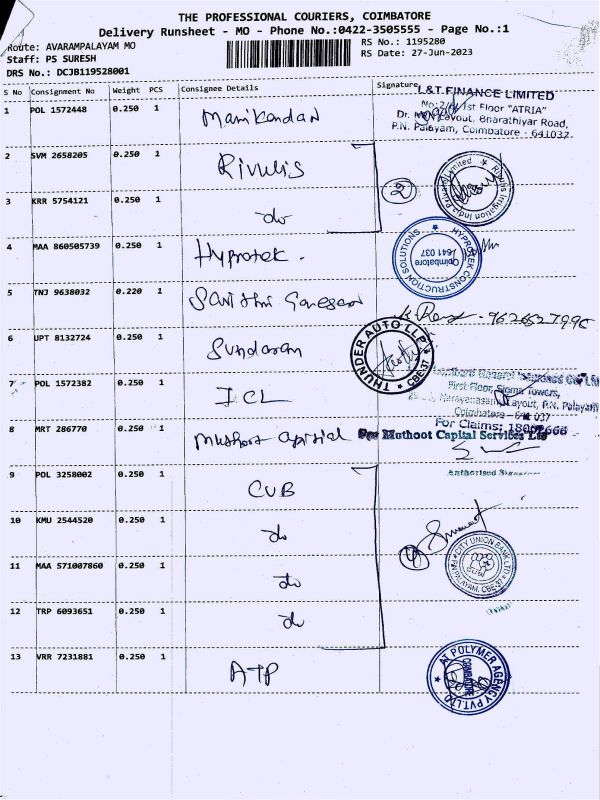 THE PROFESSIONAL COURIERS, COIMBATORE
Delivery Runsheet - MO - Phone No.:0422-3505555 - Page No.:1
Route: AVARAMPALAYAM MO
RS No.: 1195280
Staff: PS SURESH
RS Date: 27-Jun-2023
DRS No.: DCJB119528001
S No Consignment No Weight PCS Consignee Details Signature
L&T FINANCE LIMITED
1 POL 1572448 0.250 1 Manikandan
1st Floor "ATRIA"
Layout, Bharathiyar Road,
P.N. Palayam, Coimbatore - 641037
2 SVM 2658205 0.250 1 Rivulis
2
Rivulis Irrigation India Private Limited
3 KRR 5754121 0.250 1 do
4 MAA 860505739 0.250 1 Hyprotek.
HYPROTEK CONSTRUCTION SOLUTIONS
Coimbatore
641 037
5 TNJ 9638032 0.220 1
6 UPT 8132724 0.250 1 Sundaram
THUNDER AUTO LLP
CBE-37
7 POL 1572382 0.250 1 ICL
First Floor, Sigma Towers,
Layout, P.N. Palayam
Coimbatore - 641 037
For Claims:
8 MRT 286770 0.250 1 Muthoot Capital
For Muthoot Capital Services Ltd
Authorised
9 POL 3258002 0.250 1 CUB
10 KMU 2544520 0.250 1 do
4
CITY UNION BANK LTD
P.N PALAYAM, CBE-37
11 MAA 571007860 0.250 1 do
12 TRP 6093651 0.250 1 do
13 VRR 7231881 0.250 1 ATP
AT POLYMER AGENCY PVT.LTD
COIMBATORE